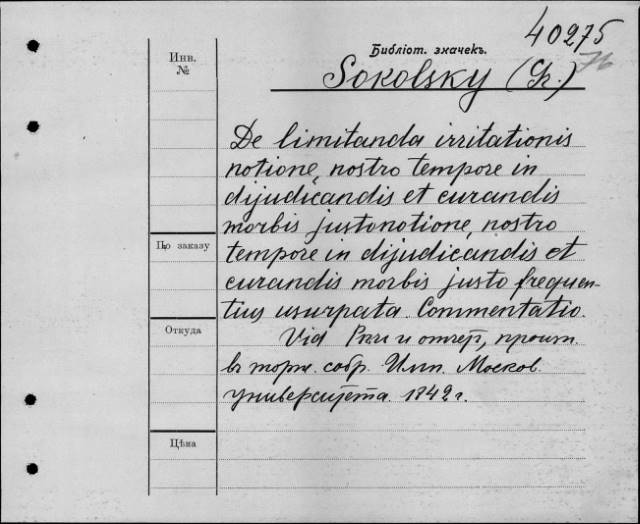 40275
76
Библіот. значекъ.
Sokolsky (Gr.)
Инв.
№
De limitanda irritationis
notione, nostro tempore in
dijudicandis et curandis
morbis justonotione, nostro
По заказу
tempore in dijudicandis et
curandis morbis justo frequen-
tius usurpata. Commentatio.
Откуда
Vid Речи и отчет, произн.
въ торж. собр. Имп. Москов.
университета 1842 г.
Цѣна